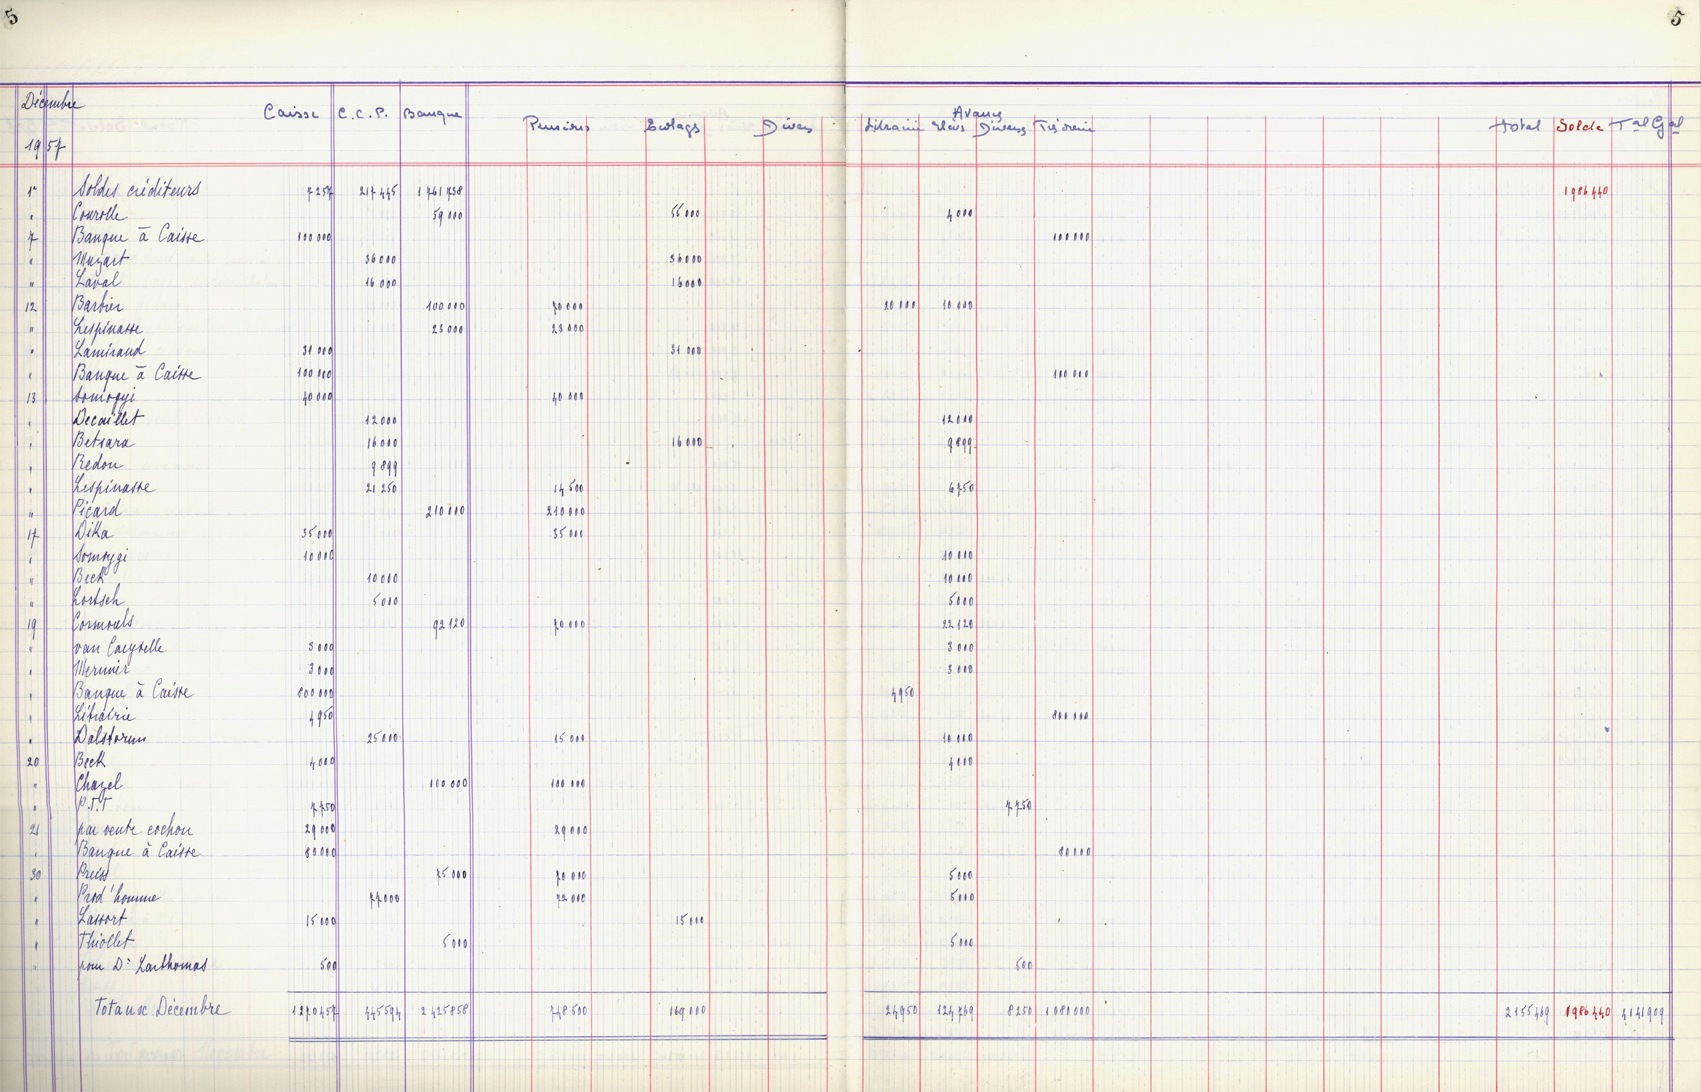 5 5
Décembre
1957
Caisse C.C.P. Banque Pensions Ecolages Divers Librairie Avances Elèves Divers Trésorerie Total Solde Tal Gal
1er Soldes créditeurs 7 257 217 445 1 761 738 1 986 440
" Courolle 59 000 55 000 4 000
7 Banque à Caisse 100 000 100 000
" Muzart 36 000 36 000
" Laval 16 000 16 000
12 Barbier 100 000 70 000 20 000 10 000
" Lespinasse 23 000 23 000
" Lamiraud 31 000 31 000
" Banque à Caisse 100 000 100 000
13 Somogyi 40 000 40 000
" Decaillet 12 000 12 000
" Betsara 16 000 16 000 9 899
" Redon 9 899
" Lespinasse 21 250 14 500 6 750
" Picard 210 000 210 000
17 Dika 35 000 35 000
" Somogyi 10 000 10 000
" Beck 10 000 10 000
" Lortsch 5 000 5 000
19 Cormouls 92 120 70 000 22 120
" van Caeyselle 3 000 3 000
" Mernier 3 000 3 000
" Banque à Caisse 800 000 4 950
" Librairie 4 950 800 000
" Dalstorum 25 000 15 000 10 000
20 Beck 4 000 4 000
" Chazel 100 000 100 000
" P.T.T 7 750 7 750
21 par vente cochon 29 000 29 000
" Banque à Caisse 80 000 80 000
30 Preiss 75 000 70 000 5 000
" Prod'homme 77 000 72 000 5 000
" Lassort 15 000 15 000
" Thiollet 5 000 5 000
" pour Dr Larthomas 500 500
Totaux Décembre 1 270 457 445 594 2 425 858 748 500 169 000 24 950 124 769 8 250 1 080 000 2 155 469 1 986 440 4 141 909